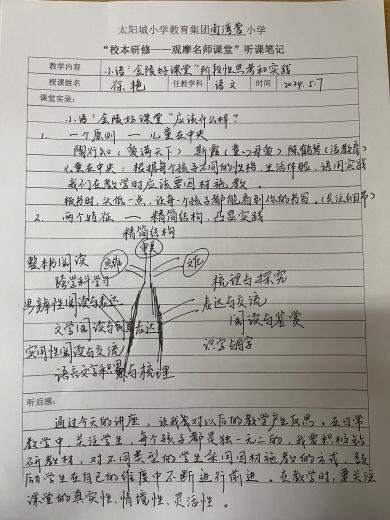 太阳城小学教育集团南湾营小学
“校本研修——观摩名师课堂”听课笔记
教学内容 小语“金陵好课堂”阶段性思考和实践
授课姓名 徐艳 任教学科 语文 时间 2024.5.7
课堂实录:
小语“金陵好课堂”应该什么样?
1. 一个原则 — 儿童在中央
陶行知(爱满天下) 斯霞(童心母爱) 陈鹤琴(活教育)
儿童在中央: 根据每个孩子不同的性格,生活体验,语用实践
我们在教学时应该要因材施教。
板书时,头低一点,让每个孩子都能看到你的书写。(关注细节)
2. 两个特征 — 精简结构,凸显实践
精简结构
审美
整本书阅读 思维 文化
跨学科学习 梳理与探究
思辨性阅读与表达 表达与交流
文学阅读与创意表达 阅读与鉴赏
实用性阅读与交流 识字与写字
语言文字积累与梳理
听后感:
通过今天的讲座,让我对以后的教学产生反思。在日常
教学中,关注学生,每个孩子都是独一无二的,我要积极钻
研教材,对不同类型的学生采用因材施教的方式,鼓
励学生在自己的维度中不断进行前进。在教学时,要关注
课堂的真实性,情境性,灵活性。